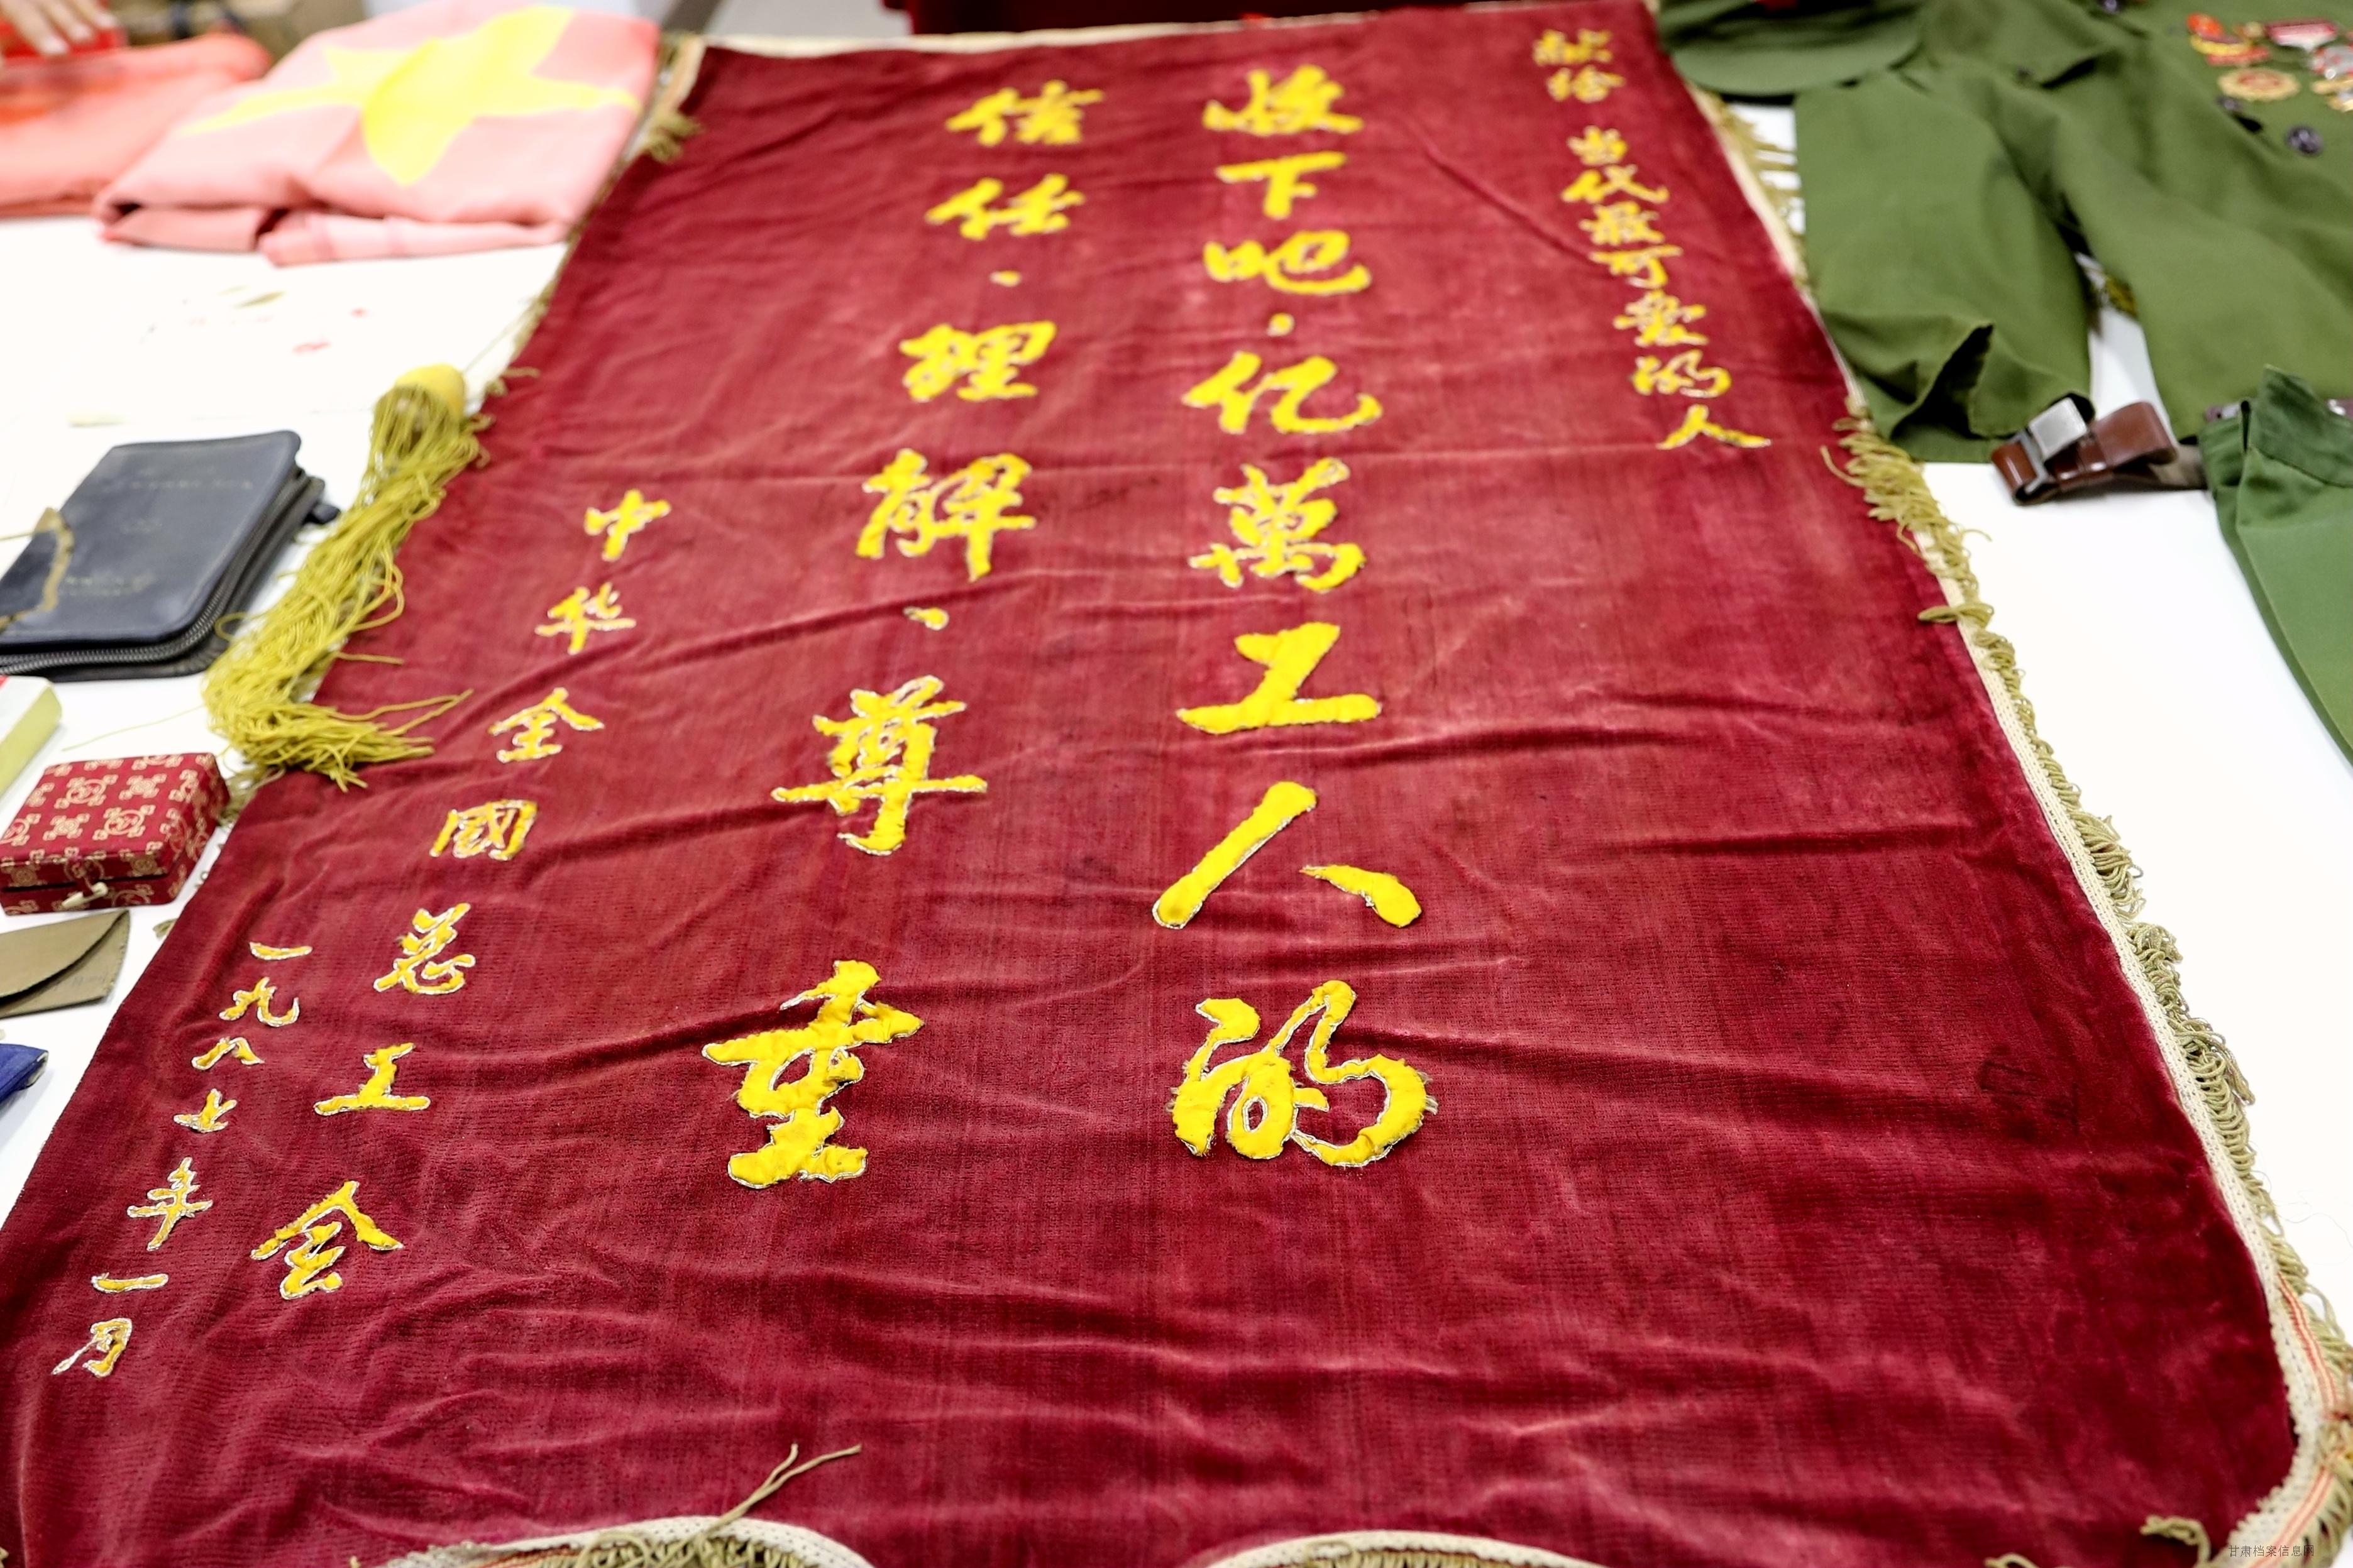 献给 当代最可爱的人
收下吧·亿萬工人的
信任·理解·尊重
中华全國总工会
一九八七年一月
甘肃档案信息网